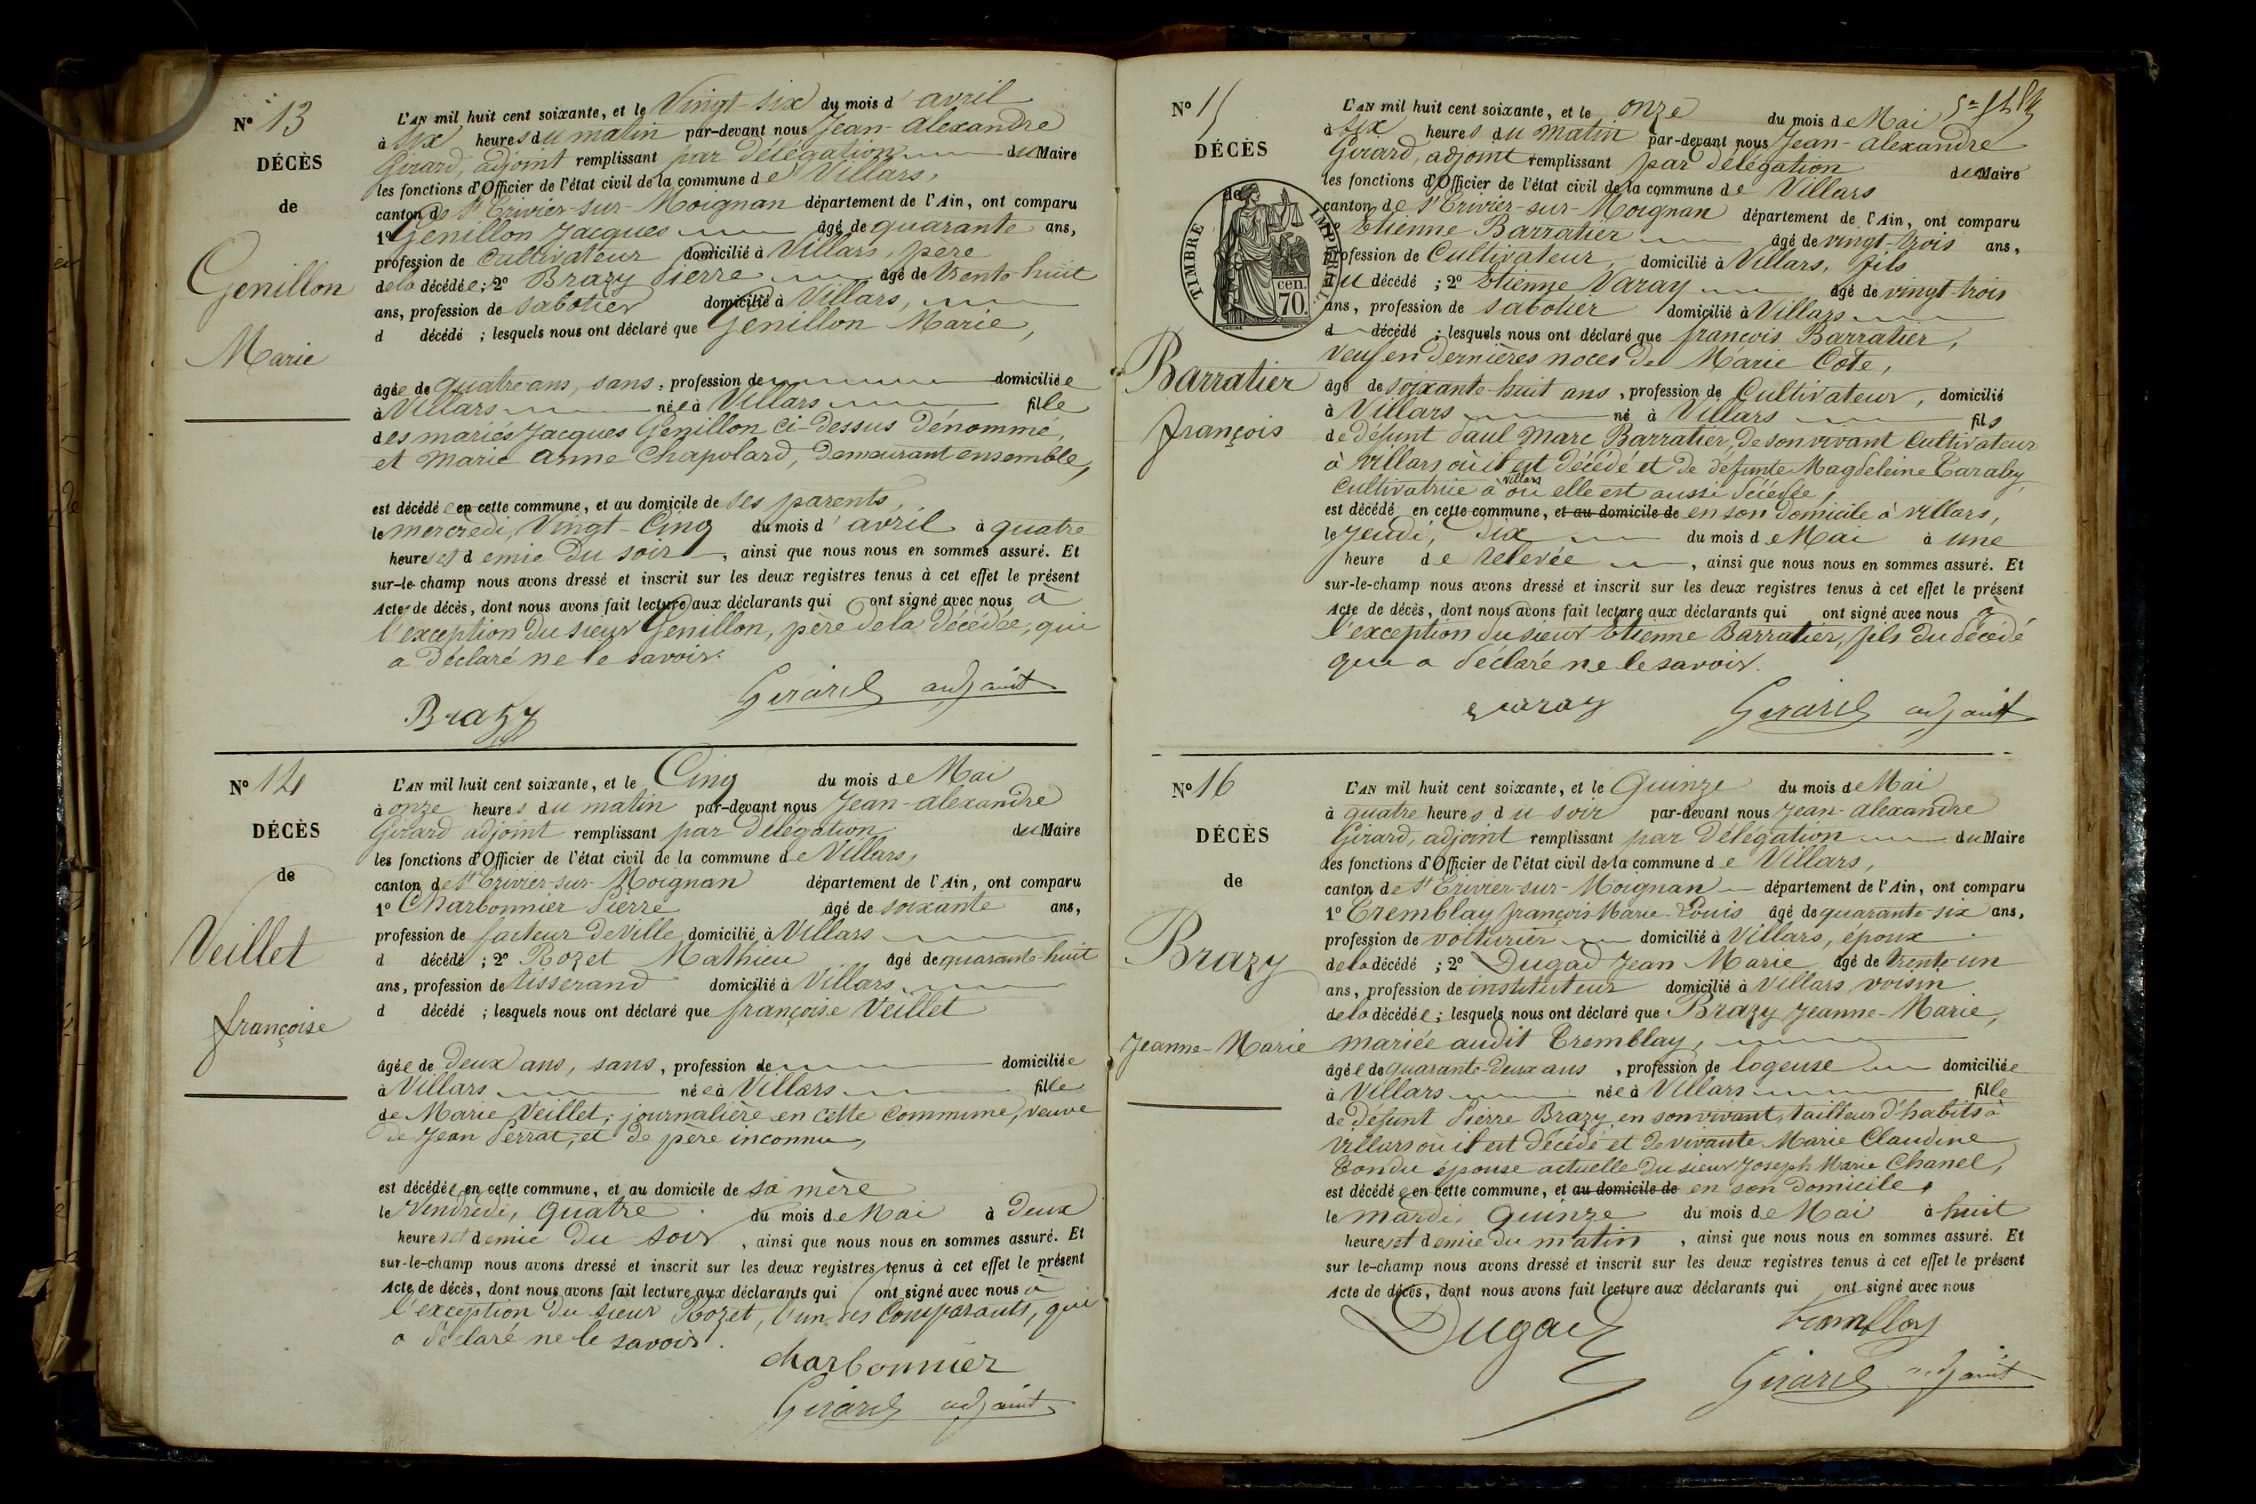 N° 13
DÉCÈS
de
Genillon
Marie
L'AN mil huit cent soixante, et le Vingt-six du mois d'avril
à six heures du matin par-devant nous Jean-alexandre
Girard, adjoint remplissant par délégation du Maire
les fonctions d'Officier de l'état civil de la commune de Villars,
canton de St Trivier-sur-Moignan département de l'Ain, ont comparu
1° Genillon Jacques âgé de quarante ans,
profession de cultivateur domicilié à Villars, père
de la décédée; 2° Brazy Pierre âgé de trente-huit
ans, profession de sabotier domicilié à Villars,
d décédé ; lesquels nous ont déclaré que Genillon Marie,
âgée de quatre ans, sans, profession de domiciliée
à Villars née à Villars fille
des mariés Jacques Genillon ci-dessus dénommé,
et Marie anne Chapolard, demeurant ensemble,
est décédée en cette commune, et au domicile de ses parents,
le mercredi, Vingt-Cinq du mois d'avril à quatre
heures et demie du soir, ainsi que nous nous en sommes assuré. Et
sur-le-champ nous avons dressé et inscrit sur les deux registres tenus à cet effet le présent
Acte de décès, dont nous avons fait lecture aux déclarants qui ont signé avec nous à
l'exception du sieur Genillon, père de la décédée, qui
a déclaré ne le savoir.
Brazy Girard adjoint
N° 14
DÉCÈS
de
Veillet
françoise
L'AN mil huit cent soixante, et le Cinq du mois de Mai
à onze heures du matin par-devant nous Jean-alexandre
Girard adjoint remplissant par délégation du Maire
les fonctions d'Officier de l'état civil de la commune de Villars,
canton de St Trivier-sur-Moignan département de l'Ain, ont comparu
1° Charbonnier Pierre âgé de soixante ans,
profession de facteur de Ville domicilié à Villars
d décédé ; 2° Rozet Mathieu âgé de quarante-huit
ans, profession de tisserand domicilié à Villars
d décédé ; lesquels nous ont déclaré que françoise Veillet
âgée de deux ans, sans, profession de domiciliée
à Villars née à Villars fille
de Marie Veillet, journalière en cette commune, veuve
de Jean Perrat, et de père inconnu,
est décédée en cette commune, et au domicile de sa mère
le Vendredi, quatre du mois de Mai à deux
heures et demie du soir, ainsi que nous nous en sommes assuré. Et
sur-le-champ nous avons dressé et inscrit sur les deux registres tenus à cet effet le présent
Acte de décès, dont nous avons fait lecture aux déclarants qui ont signé avec nous à
l'exception du sieur Rozet, l'un des comparants, qui
a déclaré ne le savoir.
charbonnier
Girard adjoint
N° 15
DÉCÈS
de
TIMBRE IMPÉRIAL
cen.
70.
Barratier
françois
L'AN mil huit cent soixante, et le onze du mois de Mai
à six heures du matin par-devant nous Jean-alexandre
Girard, adjoint remplissant par délégation du Maire
les fonctions d'Officier de l'état civil de la commune de Villars
canton de St Trivier-sur-Moignan département de l'Ain, ont comparu
1° Etienne Barratier âgé de vingt-trois ans,
profession de Cultivateur, domicilié à Villars, fils
du décédé ; 2° Etienne Varay âgé de vingt-trois
ans, profession de sabotier domicilié à Villars
d décédé ; lesquels nous ont déclaré que françois Barratier,
veuf en dernières noces de Marie Cote,
âgé de soixante-huit ans, profession de Cultivateur, domicilié
à Villars né à Villars fils
de défunt Paul Marc Barratier, de son vivant cultivateur
à Villars où il est décédé et de défunte Magdeleine Taraby,
cultivatrice à Villars où elle est aussi décédée,
est décédé en cette commune, et au domicile de en son domicile à villars,
le Jeudi, dix du mois de Mai à une
heure de relevée, ainsi que nous nous en sommes assuré. Et
sur-le-champ nous avons dressé et inscrit sur les deux registres tenus à cet effet le présent
Acte de décès, dont nous avons fait lecture aux déclarants qui ont signé avec nous à
l'exception du sieur Etienne Barratier, fils du décédé
qui a déclaré ne le savoir.
varay Girard adjoint
N° 16
DÉCÈS
de
Brazy
Jeanne-Marie
L'AN mil huit cent soixante, et le Quinze du mois de Mai
à quatre heures du soir par-devant nous Jean-alexandre
Girard, adjoint remplissant par délégation du Maire
les fonctions d'Officier de l'état civil de la commune de Villars,
canton de St Trivier-sur-Moignan département de l'Ain, ont comparu
1° Tremblay françois Marie Louis âgé de quarante-six ans,
profession de voiturier domicilié à Villars, époux
de la décédé ; 2° Dugad Jean Marie âgé de trente-un
ans, profession de instituteur domicilié à Villars, voisin
de la décédée ; lesquels nous ont déclaré que Brazy Jeanne-Marie,
mariée audit Tremblay,
âgée de quarante-deux ans, profession de logeuse domiciliée
à Villars née à Villars fille
de défunt Pierre Brazy, en son vivant, tailleur d'habits à
Villars où il est décédé et de vivante Marie Claudine
Tondu épouse actuelle du sieur Joseph Marie Chanel,
est décédée en cette commune, et au domicile de en son domicile,
le mardi, quinze du mois de Mai à huit
heures et demie du matin, ainsi que nous nous en sommes assuré. Et
sur le-champ nous avons dressé et inscrit sur les deux registres tenus à cet effet le présent
Acte de décès, dont nous avons fait lecture aux déclarants qui ont signé avec nous
Dugad tramblay
Girard adjoint